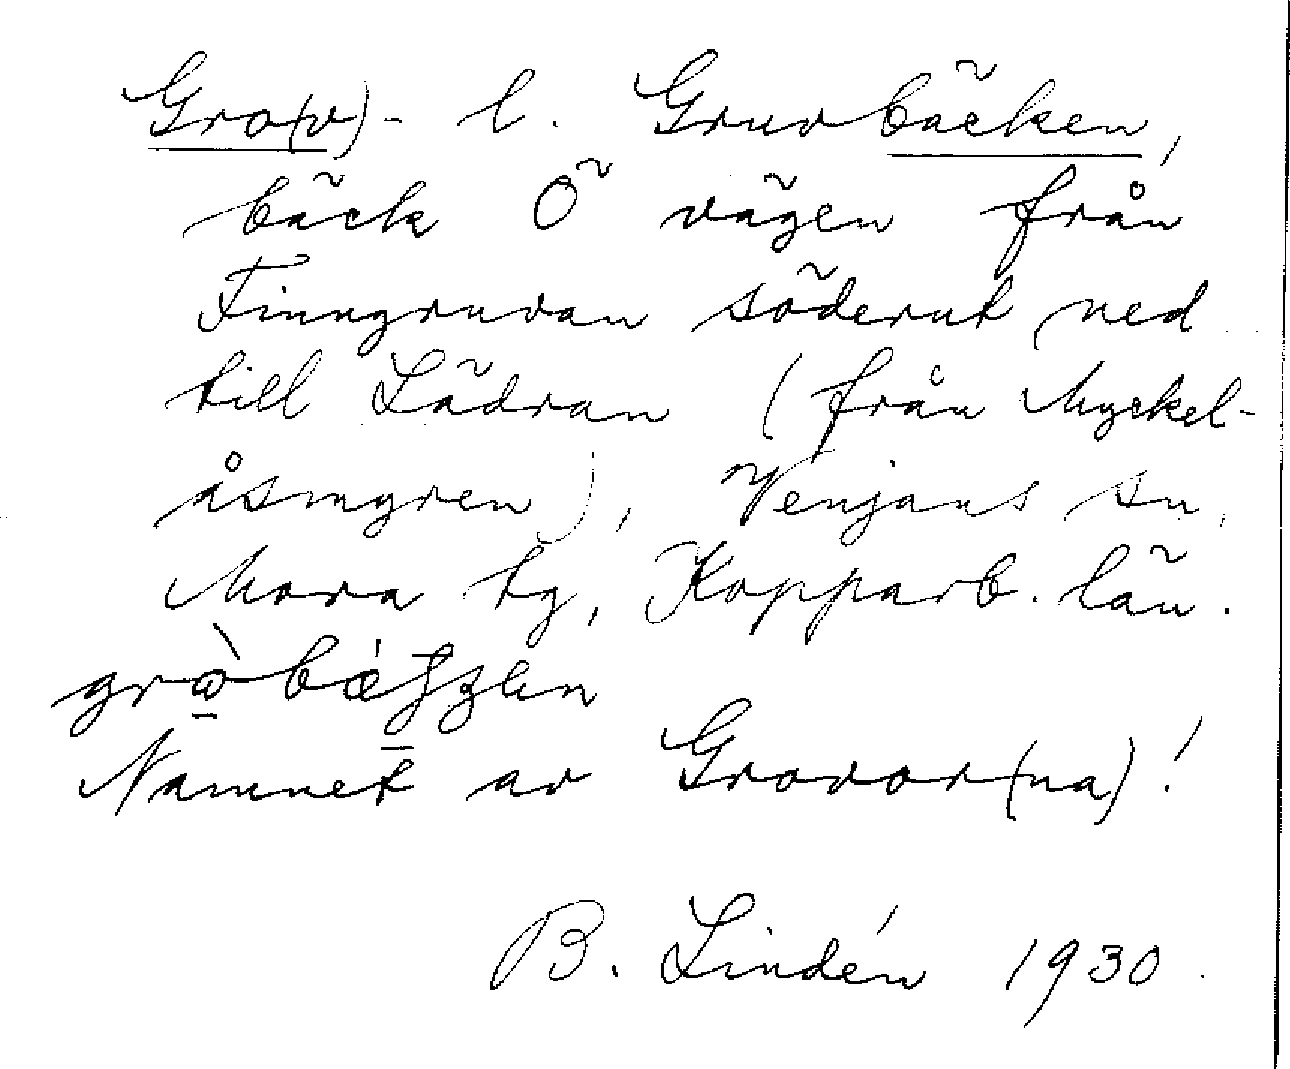 Gro(v)- l. Gruvbäcken,
bäck Ö vägen från
Finngruvan söderut ned
till Lädran (från Myckel-
åsmyren), Venjans sn,
Mora tg, Kopparb. län.
Namnet av Grovor(na)!
B. Lindén 1930.